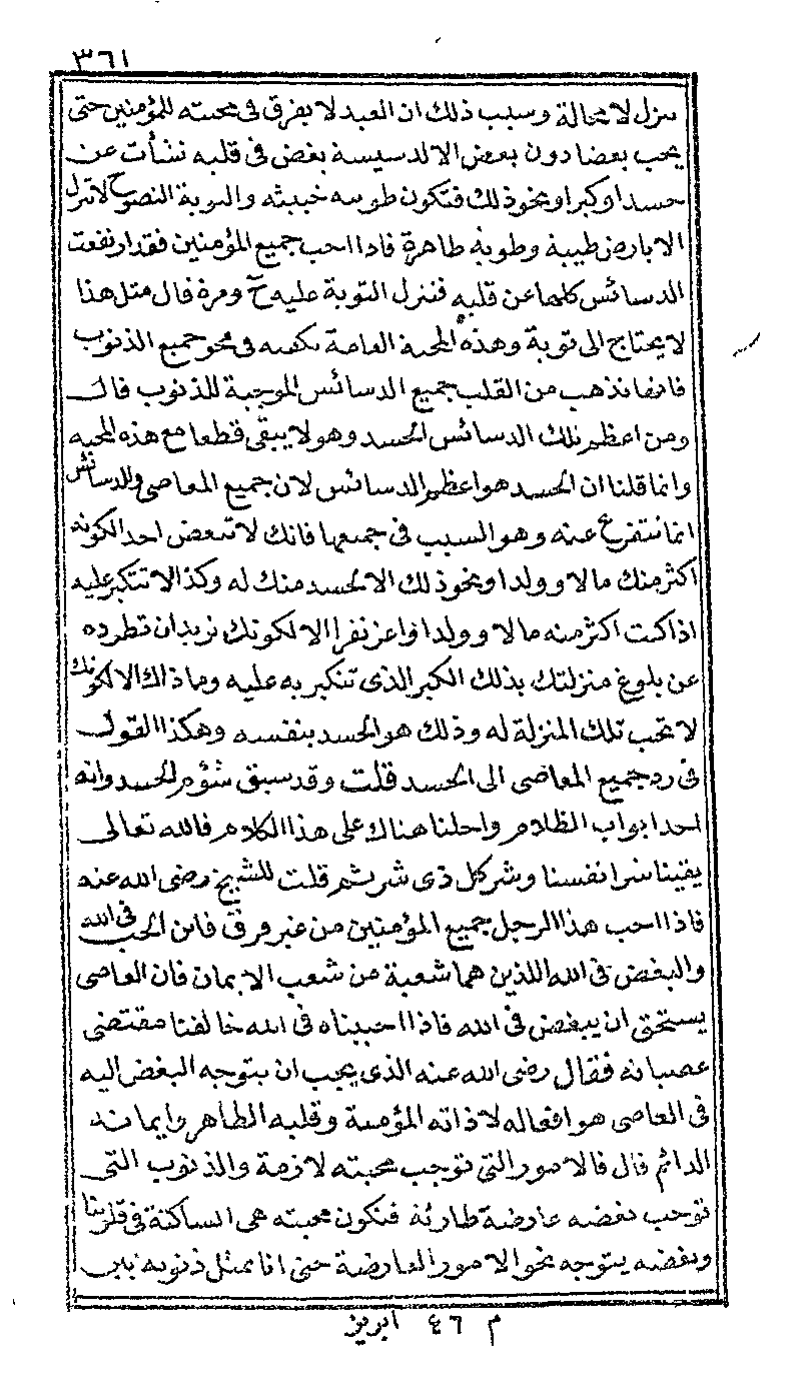 ٣٦١
تنزل لا محالة وسبب ذلك ان العبد لا يفرق فى محبته للمؤمنين حتى
يحب بعضا دون بعض الا لدسيسة بغض فى قلبه نشأت عن
حسد او كبر او نحو ذلك فتكون طويته خبيثه والتوبة النصوح لا تنزل
الا بارض طيبة وطوية طاهرة فاذا احب جميع المؤمنين فقد ارتفعت
الدسائس كلها عن قلبه فتنزل التوبة عليه ح ومرة قال مثل هذا
لا يحتاج الى توبة وهذه المحبة العامة تكفيه فى محو جميع الذنوب
فانها تذهب من القلب جميع الدسائس الموجبة للذنوب قال
ومن اعظم تلك الدسائس الحسد وهو لا يبقى قطعا مع هذه المحبه
وانما قلنا ان الحسد هو اعظم الدسائس لان جميع المعاصى والدسائس
انما تتفرع عنه وهو السبب فى جميعها فانك لا تبغض احدا لكونه
اكثر منك مالا وولدا ونحو ذلك الا لحسد منك له وكذا لا تتكبر عليه
اذا كنت اكثر منه مالا وولدا واعز نفرا الا لكونك تريد ان تطرده
عن بلوغ منزلتك بذلك الكبر الذى تتكبر به عليه وما ذاك الا لكونك
لا تحب تلك المنزلة له وذلك هو الحسد بنفسه وهكذا القول
فى رد جميع المعاصى الى الحسد قلت وقد سبق شؤم الحسد وانه
احد ابواب الظلام واحلنا هناك على هذا الكلام فالله تعالى
يقينا شر انفسنا وشر كل ذى شر ثم قلت للشيخ رضى الله عنه
فاذا احب هذا الرجل جميع المؤمنين من غير فرق فاين الحب فى الله
والبغض فى الله اللذين هما شعبة من شعب الايمان فان العاصى
يستحق ان يبغض فى الله فاذا احببناه فى الله خالفنا مقتضى
عصيانه فقال رضى الله عنه الذى يجب ان يتوجه البغض اليه
فى العاصى هو افعاله لا ذاته المؤمنة وقلبه الطاهر وايمانه
الدائم قال فالامور التى توجب محبته لازمة والذنوب التى
توجب بغضه عارضة طارئة فتكون محبته هى الساكنة فى قلوبنا
وبغضه يتوجه نحو الامور العارضة حتى انا نمثل ذنوبه بين
م ٤٦ ابريز